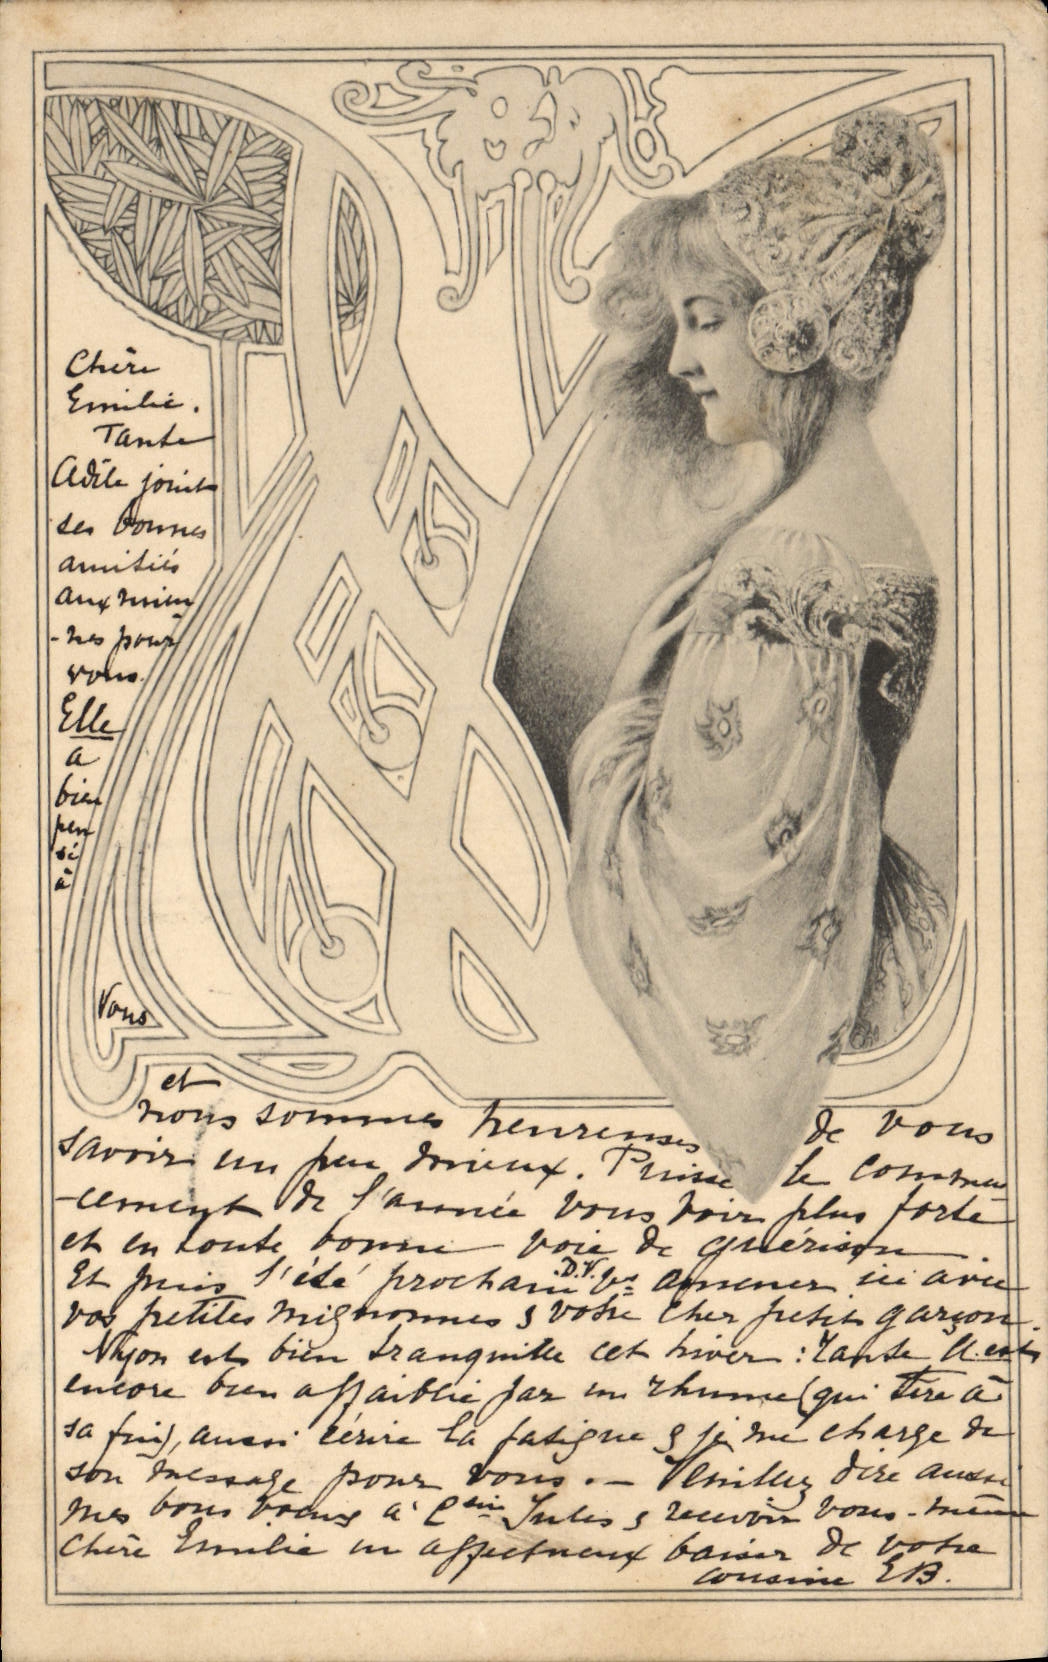 Chère
Emilie.
Tante
Adèle joint
ses bonnes
amitiés
aux mien
-nes pour
vous.
Elle
a
bien
pen
sé
à
Vous
et
nous sommes heureuses de vous
savoir un peu mieux. Puisse le commen
-cement de l'année vous voir plus forte
et en toute bonne voie de guérison.
Et puis l'été prochain D.V. vs amener ici avec
vos petites mignonnes & votre cher petit garçon.
Nyon est bien tranquille cet hiver: Tante A. est
encore bien affaiblie par un rhume (qui tire à
sa fin), aussi écrire la fatigue & je me charge de
son message pour vous. — Veuillez dire aussi
mes bons vœux à Csin Jules & recevoir vous-même
chère Emilie un affectueux baiser de votre
cousine EB.